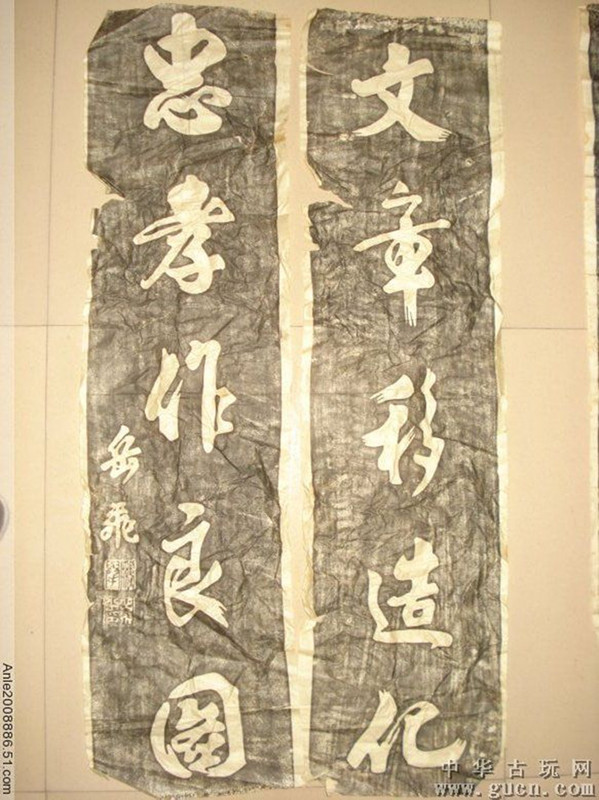 文章移造化
忠孝作良圖
岳飛
中华古玩网
www.gucn.com
Anle2008886.51.com